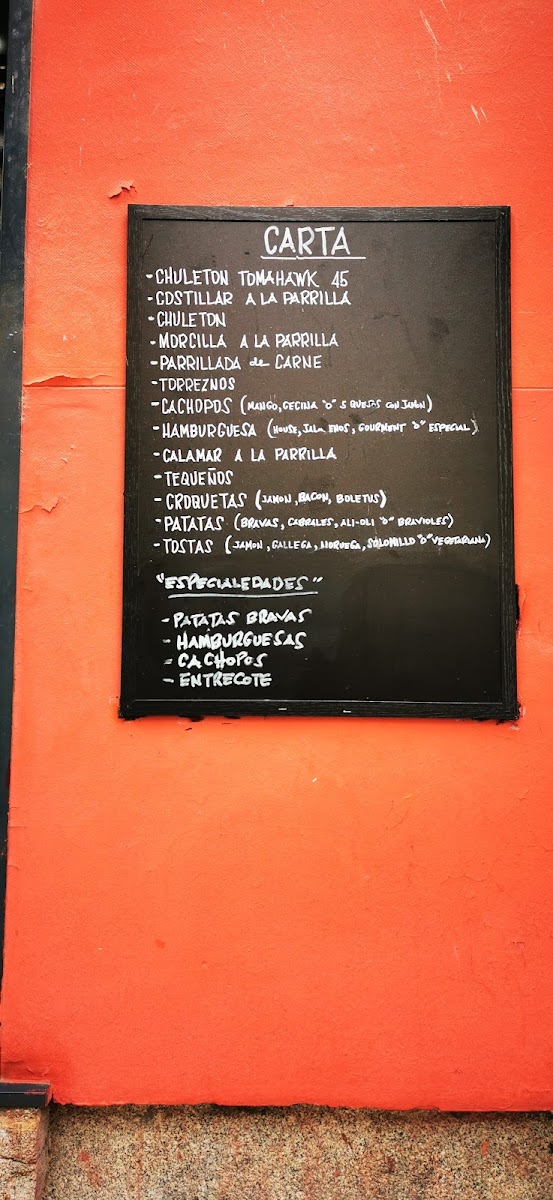 CARTA
- CHULETON TOMAHAWK 45
- COSTILLAR A LA PARRILLA
- CHULETON
- MORCILLA A LA PARRILLA
- PARRILLADA de CARNE
- TORREZNOS
- CACHOPOS (MANGO, CECINA "O" 5 QUESOS CON JAMON)
- HAMBURGUESA (HOUSE, JALAPEÑOS, GOURMENT "O" ESPECIAL)
- CALAMAR A LA PARRILLA
- TEQUEÑOS
- CROQUETAS (JAMON, BACON, BOLETUS)
- PATATAS (BRAVAS, CABRALES, ALI-OLI "O" BRAVIOLES)
- TOSTAS (JAMON, GALLEGA, NORUEGA, SOLOMILLO "O" VEGETARIANA)
"ESPECIALEDADES"
- PATATAS BRAVAS
- HAMBURGUESAS
- CACHOPOS
- ENTRECOTE